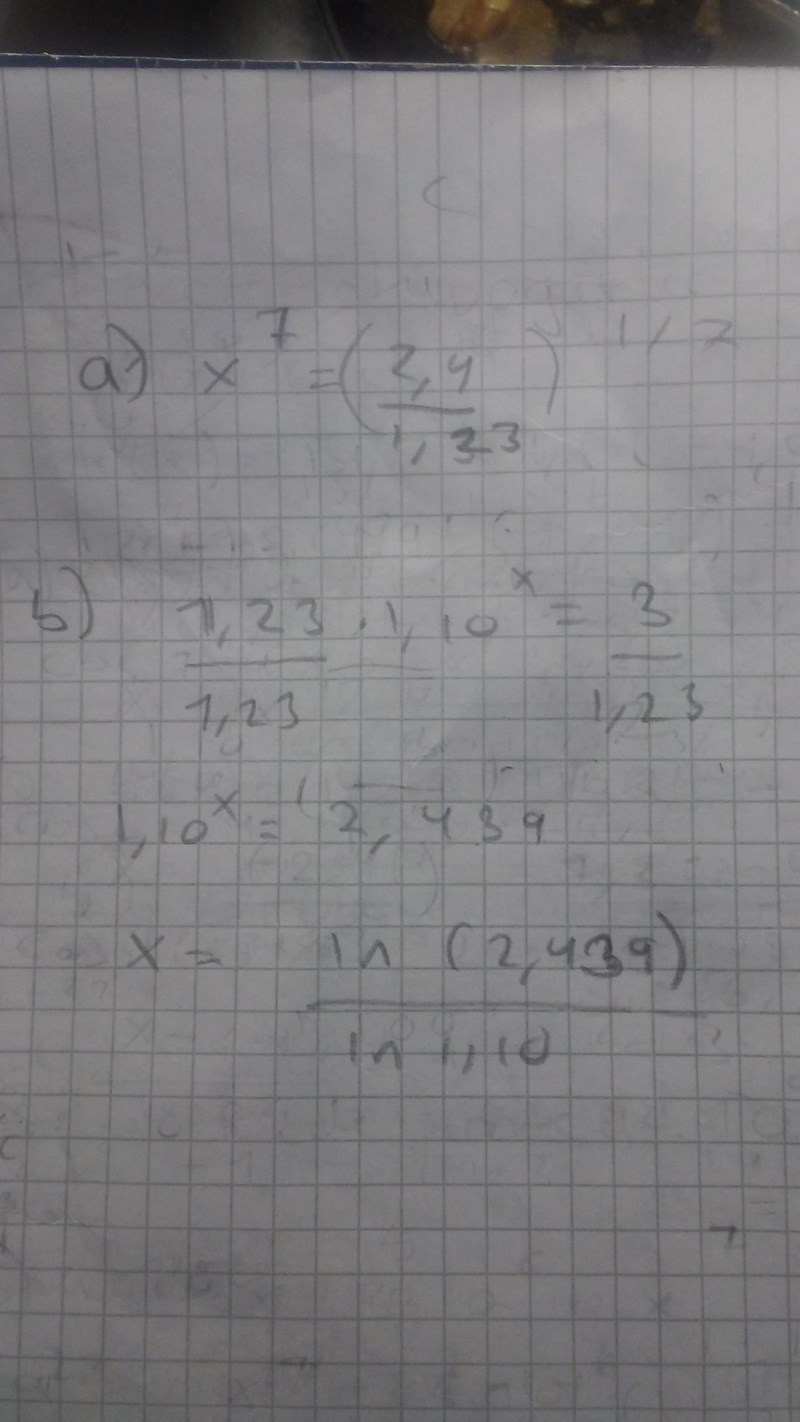 a) x^7 = (2,4 / 1,23)^1/7
b) 1,23 · 1,10^x = 3
1,23 1,23
1,10^x = 2,439
x = ln (2,439)
ln 1,10